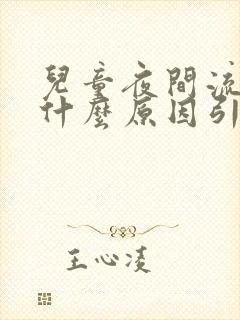 兒童夜間流
什麼原因引
王心凌